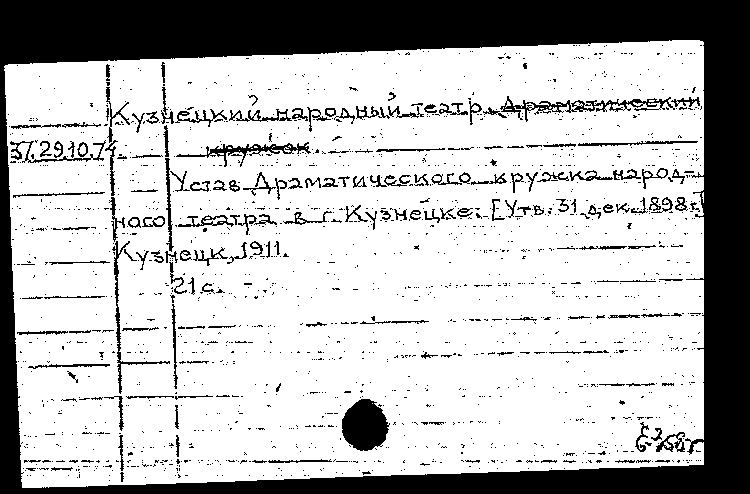 Кузнецкий народный театр. Драматический
37.29.10.74. кружок.
Устав Драматического кружка народ-
ного театра в г. Кузнецке. [Утв. 31 дек. 1898 г.]
Кузнецк, 1911.
21 с.